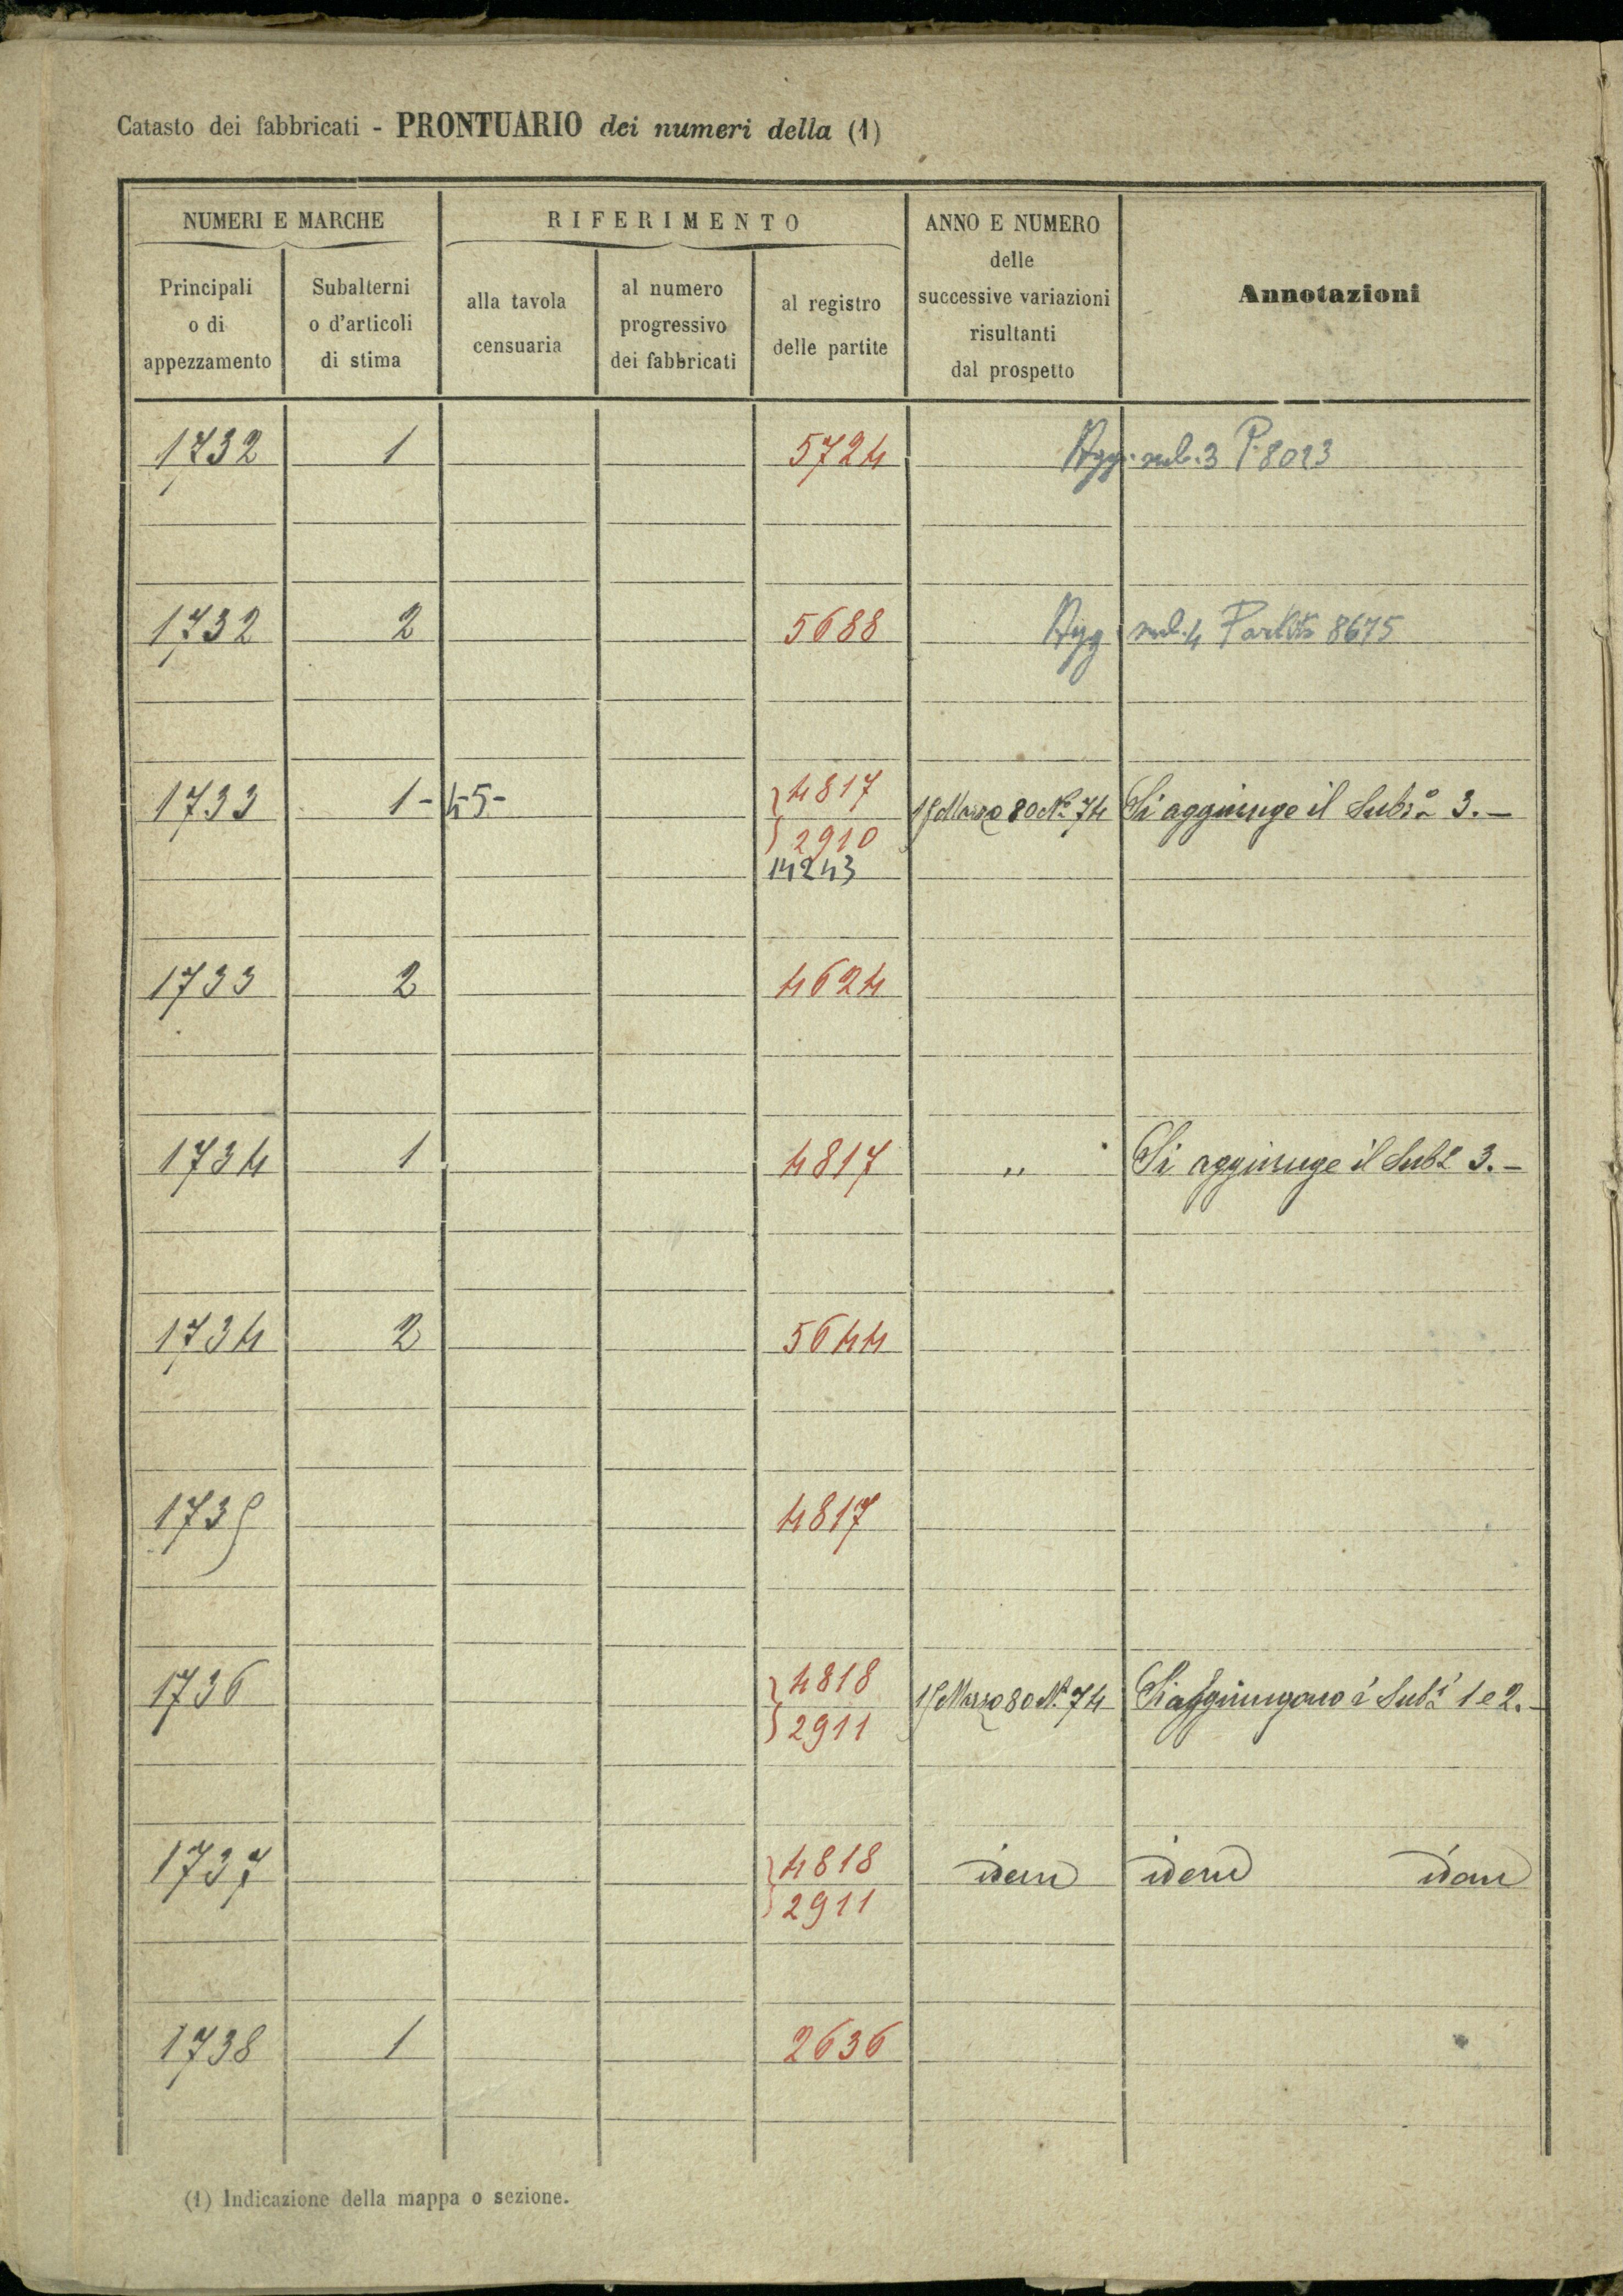 Catasto dei fabbricati - PRONTUARIO dei numeri della (1)
NUMERI E MARCHE
RIFERIMENTO
ANNO E NUMERO
delle
successive variazioni
risultanti
dal prospetto
Annotazioni
Principali
o di
appezzamento
Subalterni
o d'articoli
di stima
alla tavola
censuaria
al numero
progressivo
dei fabbricati
al registro
delle partite
1732 1 5724 Agg. sub. 3 P. 8023
1732 2 5688 Agg sub. 4 Partita 8675
1733 1-4-5- 4817 15 Marzo 80 N.° 74 Si aggiunge il Sub.° 3.-
2910
14243
1733 2 4624
1734 1 4817 " Si aggiunge il Sub.° 3.-
1734 2 5644
1735 4817
1736 4818 15 Marzo 80 N.° 74 Si aggiungono i Sub.i 1 e 2.-
2911
1737 4818 idem idem idem
2911
1738 1 2636
(1) Indicazione della mappa o sezione.